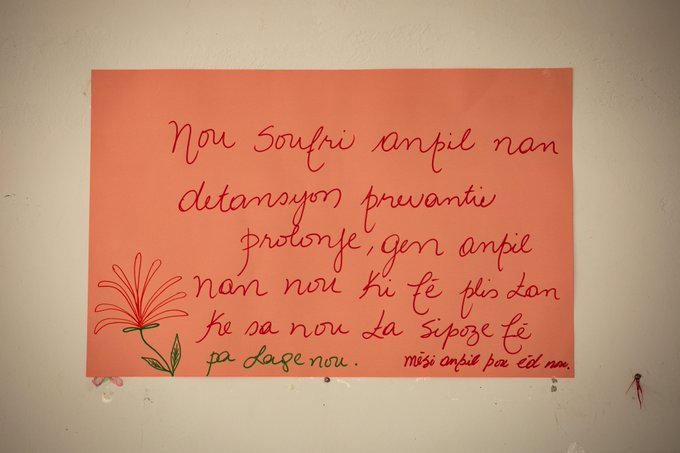 Nou soufri anpil nan
detansyon prevantiv
prolonje, gen anpil
nan nou ki fè plis tan
ke sa nou ta sipoze fè
pa lage nou.
mèsi anpil pou èd nou.